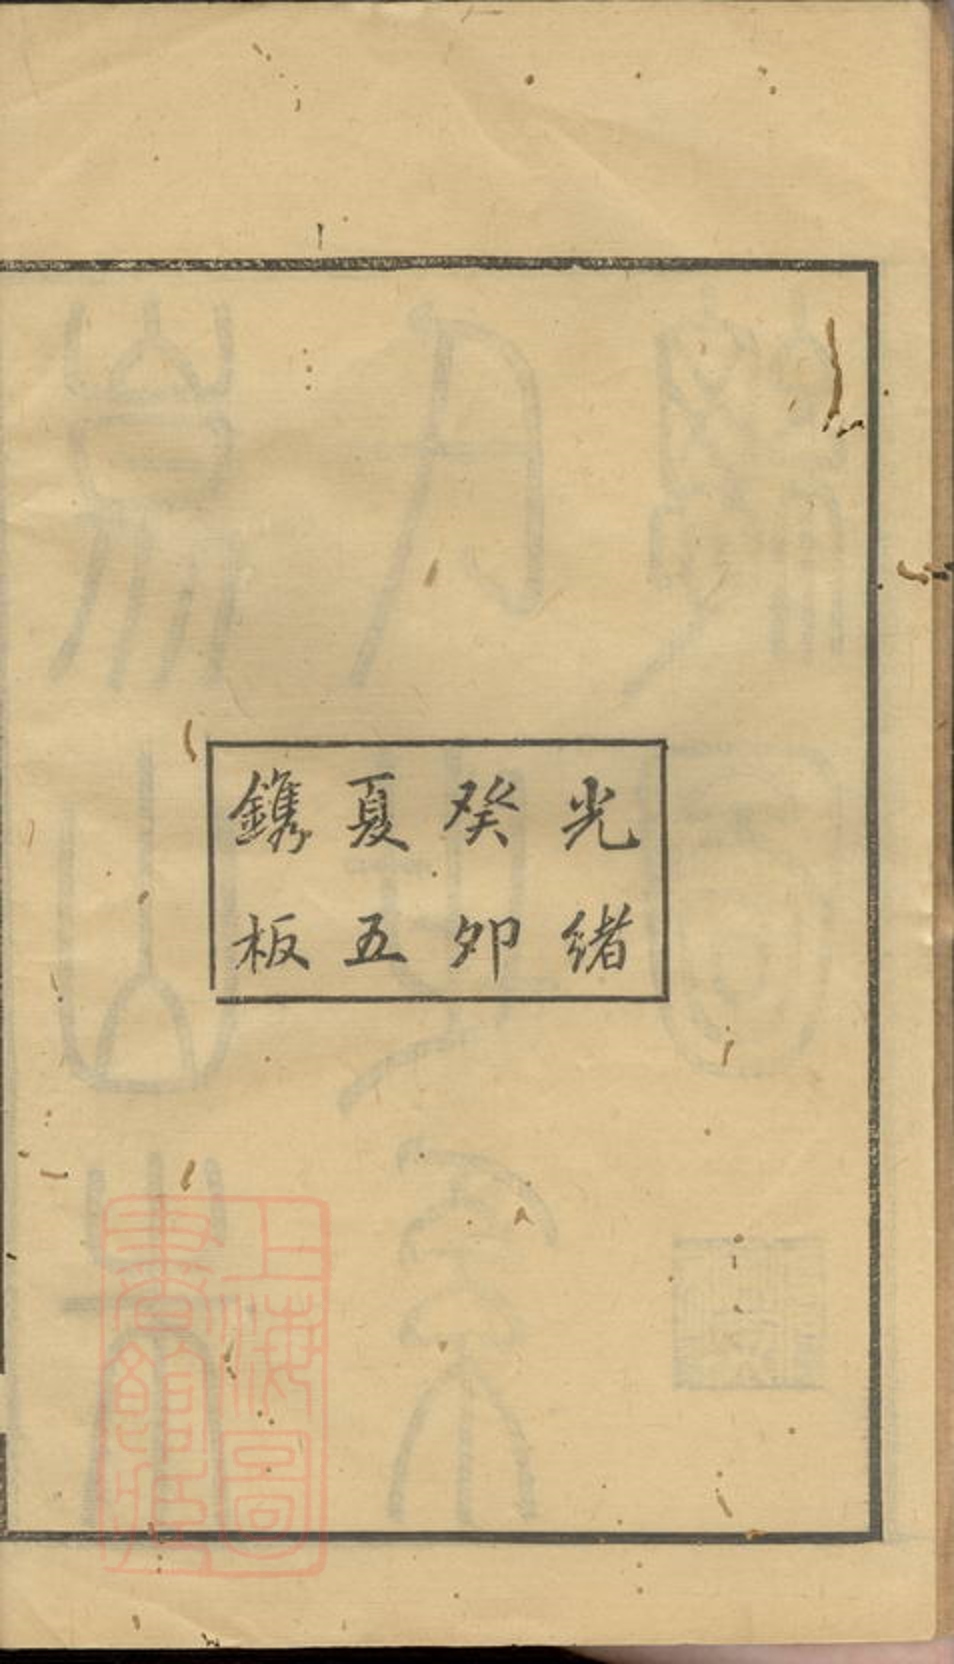 光緒
癸卯
夏五
鐫板
上海圖
書館藏